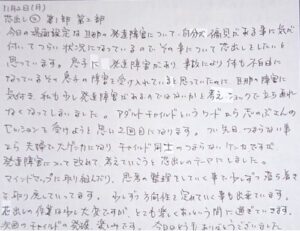 11月2日(月)
窓出し② 第1部 第2部
今日の場面設定は旦那の発達障害について、自分が偏見がある事に気が
付いてつらい状況になっているので、その事について窓出しをしたいと
思っています。息子に 発達障害があり 事故により 何も不自由に
なっているその息子の障害を受け入れていると思っていたのに、旦那の障害に
気付き、私も少し発達障害があるのではないかと考え ショックで立ち直れ
なくなってしまいました。アダルトチャイルドというワードから
セッションを受けようと思い2回目になります。つい先日つまらない事
から夫婦で大げんかになり チャイルド同士のつまらないケンカですが
発達障害について改めて考えていこうと窓出しのテーマにしました。
マインドマップに取り組んだり、思考の整理をしていく事で少しずつ落ち着き
を取り戻していってます。少しずつ方向性を定めていく事も出来ています。
窓出しの作業は少し大変ですが、とても楽しくあっという間に過ぎていきます。
次回のチャイルドの発掘、楽しみです。今日はどうもありがとうございました